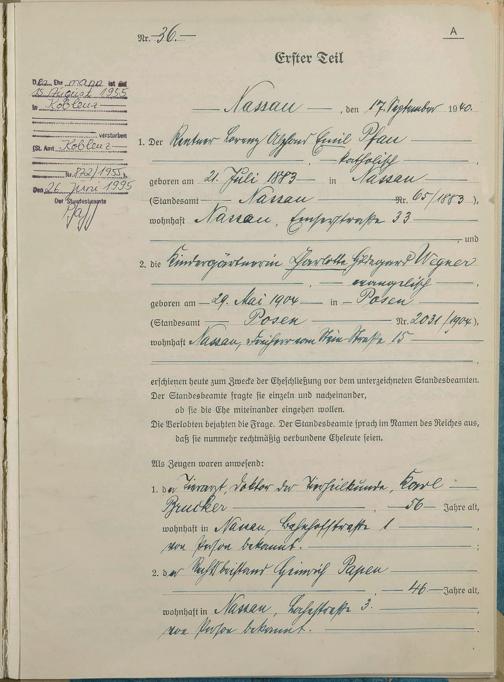 Nr. 36.
A
Erster Teil
Der Ehemann ist am
15. August 1955
in Koblenz
verstorben
(St. Amt Koblenz
Nr. 822/1955)
Den 26. Juni 1995
Der Standesbeamte
Nassau, den 17. September 1940.
1. Der Rentner Lorenz Emil Pfau
katholisch
geboren am 21. Juli 1873 in Nassau
(Standesamt Nassau Nr. 65/1883),
wohnhaft Nassau, Emserstraße 33
, und
2. die Kindergärtnerin Charlotte Hildegard Wegner
evangelisch
geboren am 29. Mai 1904 in Posen
(Standesamt Posen Nr. 2031/1904),
wohnhaft Nassau, Freiherr vom Stein-Straße 15
erschienen heute zum Zwecke der Eheschließung vor dem unterzeichneten Standesbeamten.
Der Standesbeamte fragte sie einzeln und nacheinander,
ob sie die Ehe miteinander eingehen wollen.
Die Verlobten bejahten die Frage. Der Standesbeamte sprach im Namen des Reiches aus,
daß sie nunmehr rechtmäßig verbundene Eheleute seien.
Als Zeugen waren anwesend:
1. der Tierarzt, Doktor der Tierheilkunde, Karl
Brucker 56 Jahre alt,
wohnhaft in Nassau, Bahnhofstraße 1
von Person bekannt. ;
2. der Rechtsbeistand Heinrich Papen
46 Jahre alt,
wohnhaft in Nassau, 3.
von Person bekannt.